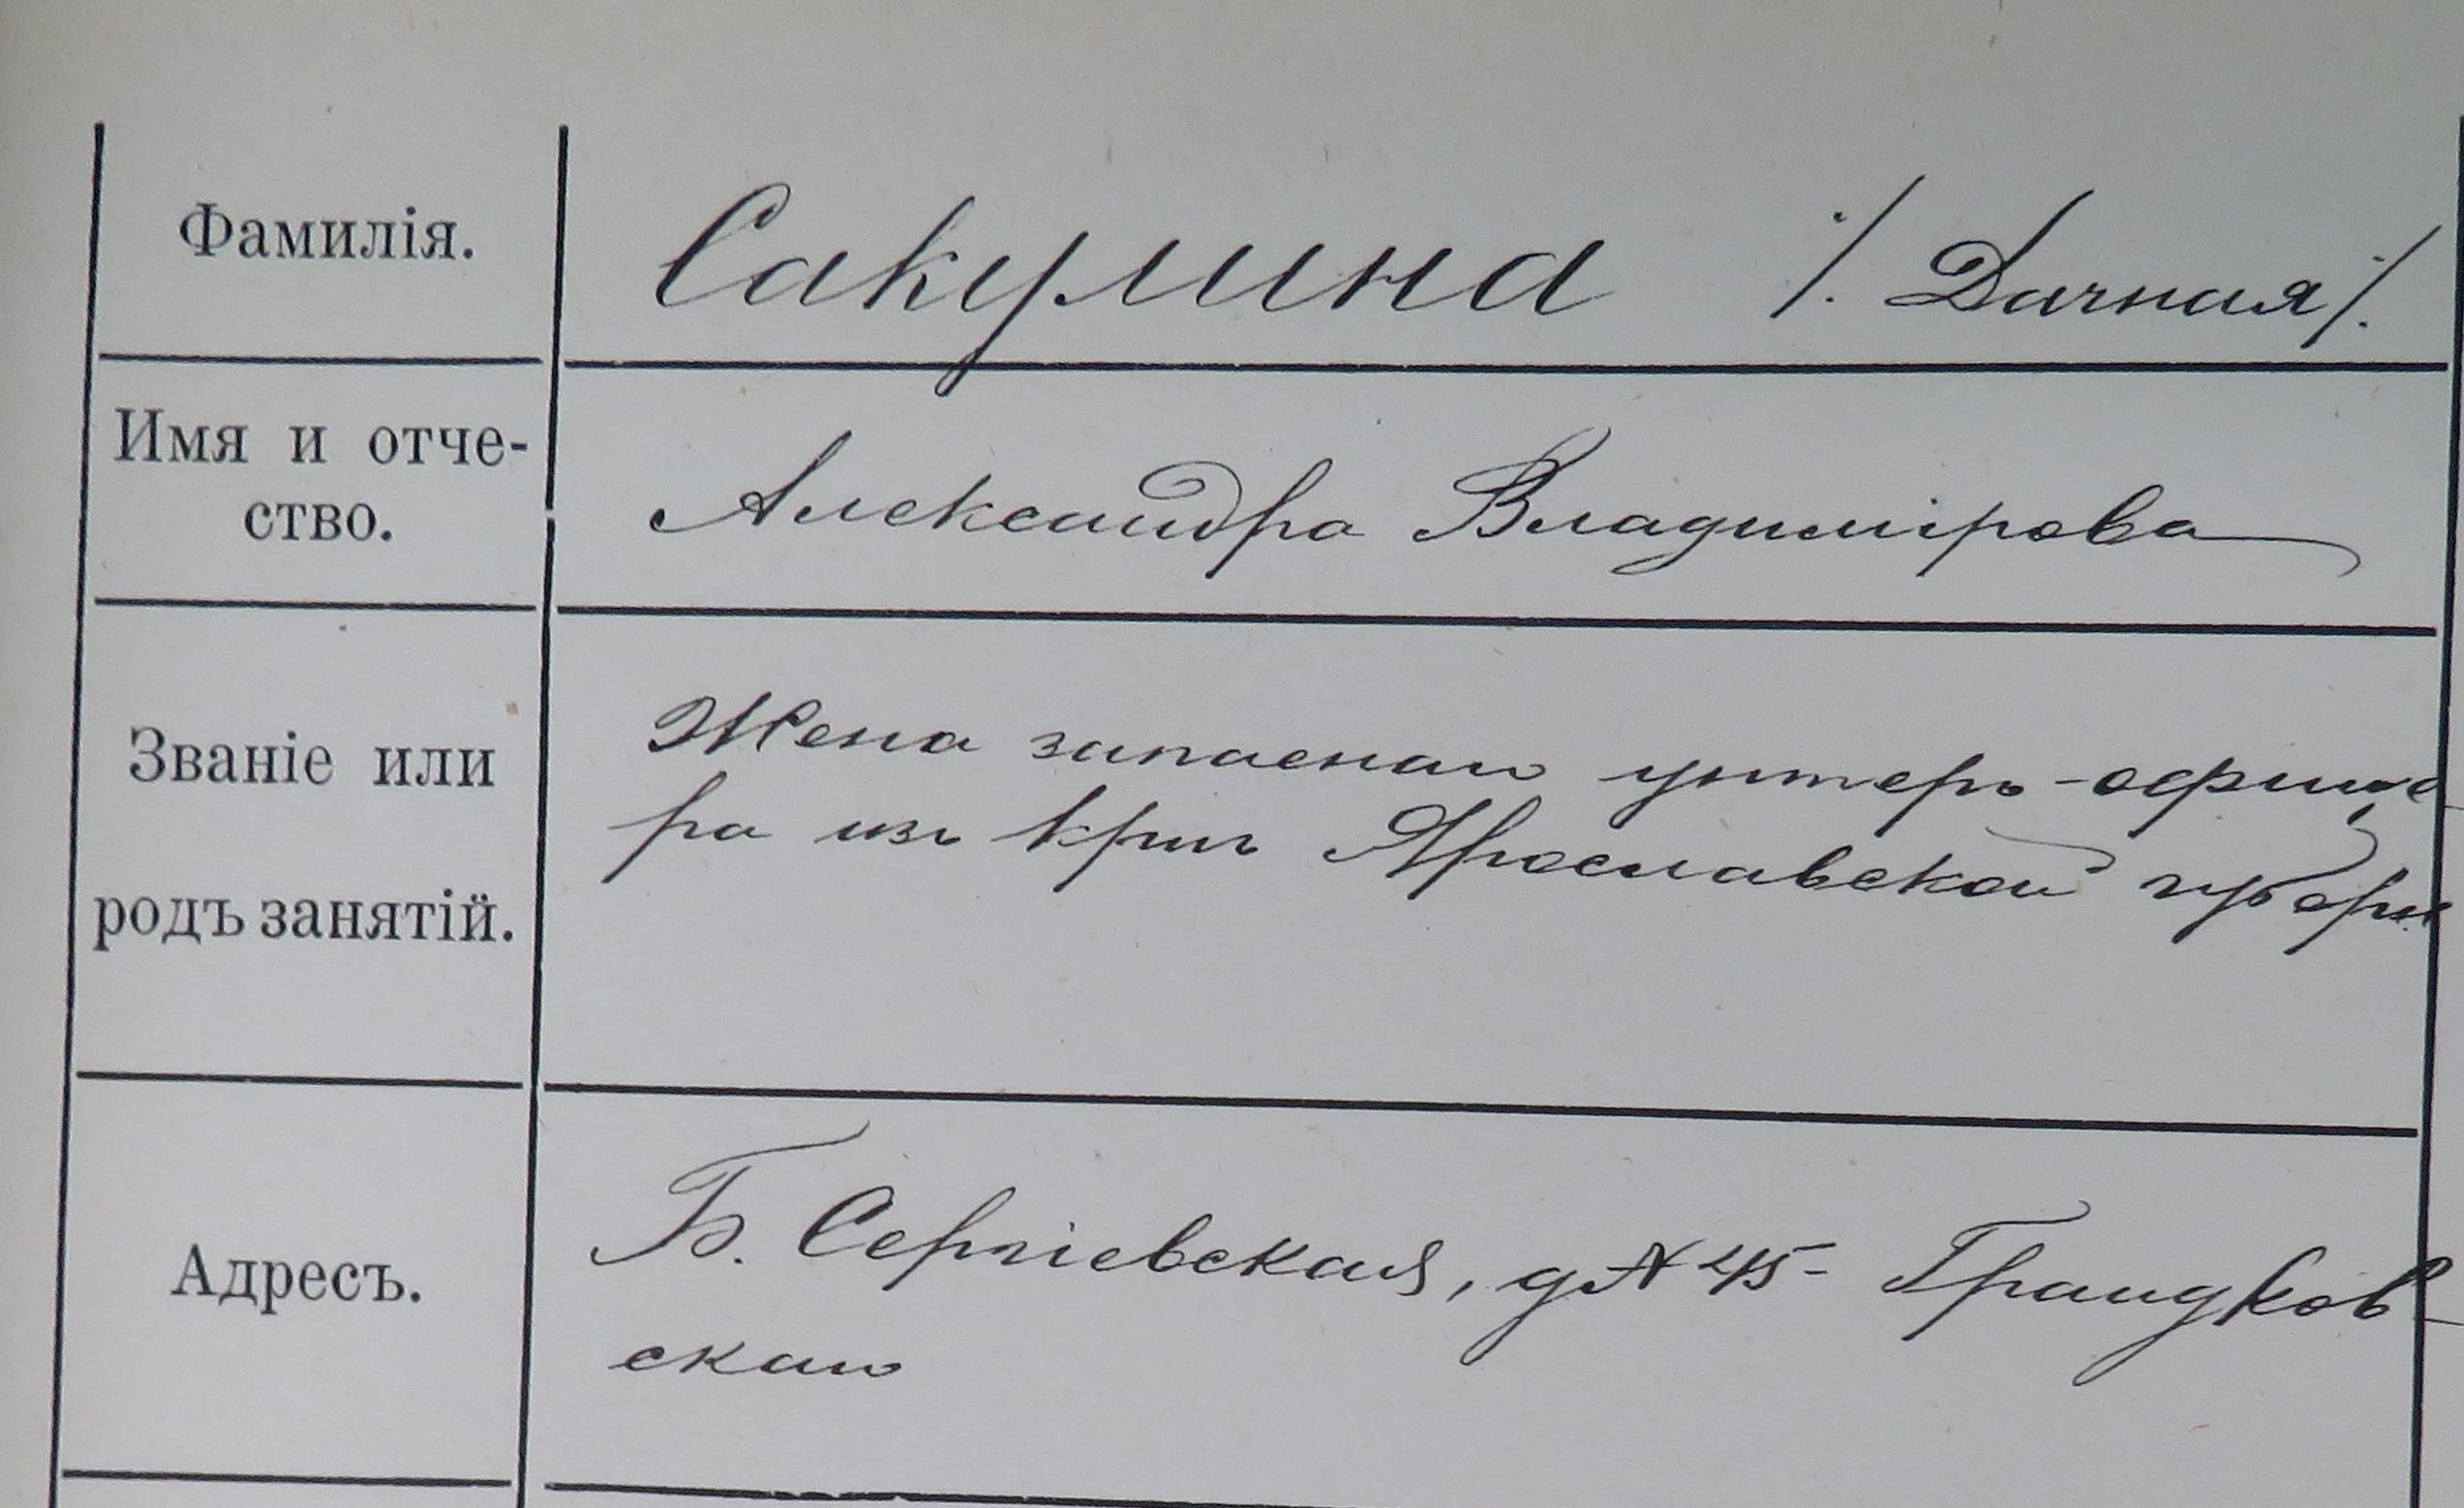 Фамилія.
Сакулина /. Дачная /.
Имя и отче-
ство.
Александра Владимірова
Званіе или
родъ занятій.
Жена запаснаго унтеръ-офице-
ра изъ крпъ Ярославской губерн
Адресъ.
Б. Сергіевская, д № 45 - Грандков-
скаго